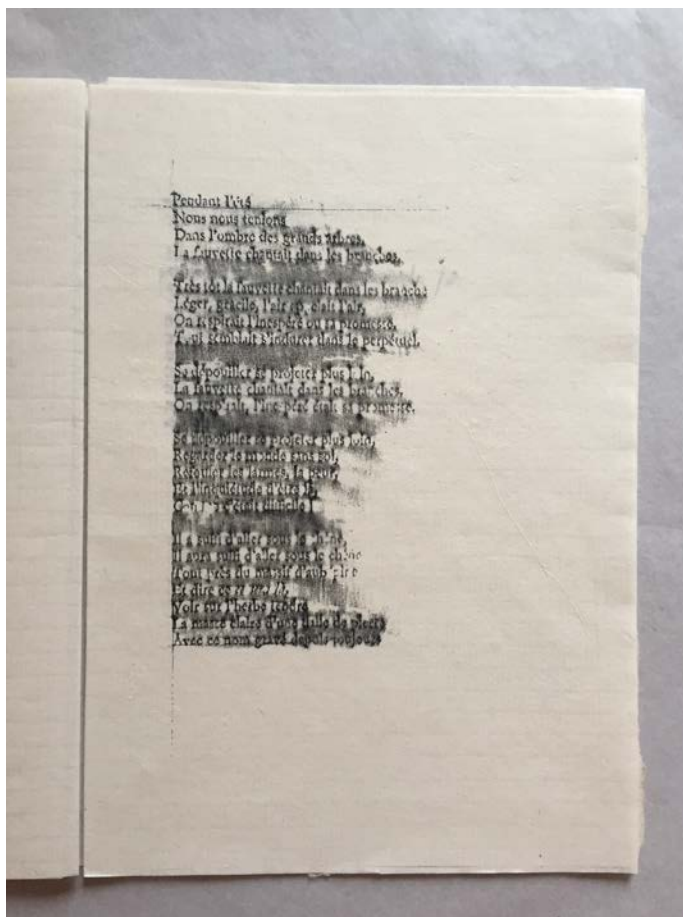 Pendant l'été
Nous nous tenions
Dans l'ombre des grands arbres,
La fauvette chantait dans les branches,
Très tôt la fauvette chantait dans les branche
Léger, gracile, l'air
On respirait l'inespéré ou sa promesse,
semblait s'indurer dans le perpétuel,
Se dépouiller se projeter plus loin,
La fauvette chantait dans les branches,
On respirait, était sa promesse.
Se dépouiller se projeter plus loin,
Regarder le monde sans sol,
les larmes, la peur,
Et l'inquiétude d'être là,
était
Il a suffi d'aller sous le chêne,
Il aura suffi d'aller sous le chêne
Tout près du massif
Et dire ce
Voir sur l'herbe tendre
La masse claire d'une dalle de pierre
Avec ce nom gravé depuis toujours